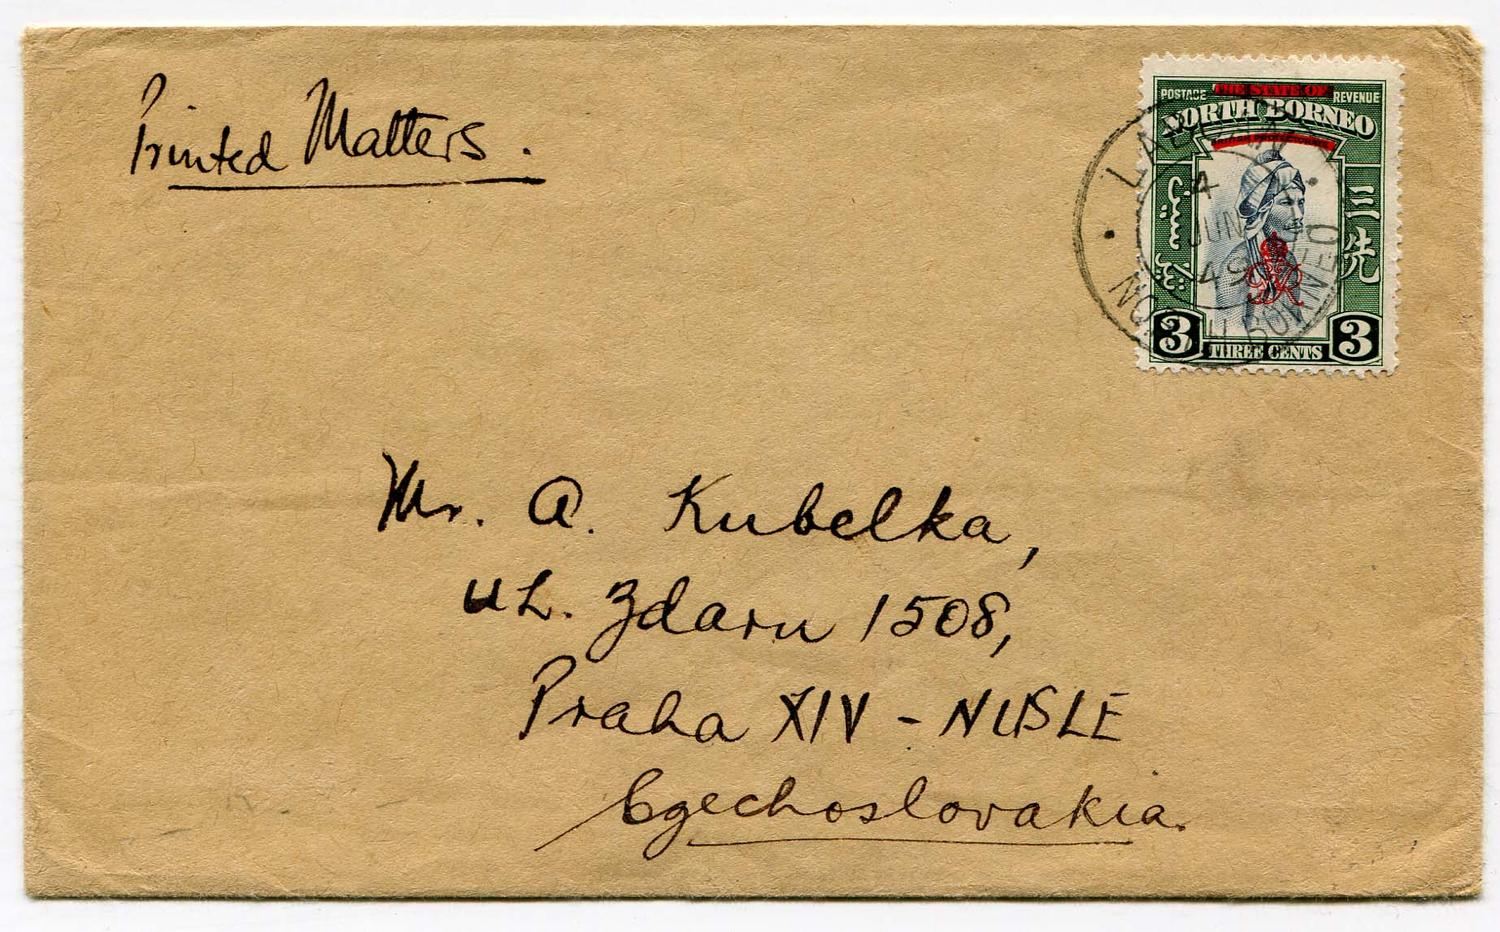 Printed Matters.
POSTAGE THE STATE OF REVENUE
NORTH BORNEO
三先
3 THREE CENTS 3
LABUAN
4
JUN
49
NORTH BORNEO
Mr. A. Kubelka,
UL. Zdaru 1508,
Praha XIV - NUSLE
Czechoslovakia.